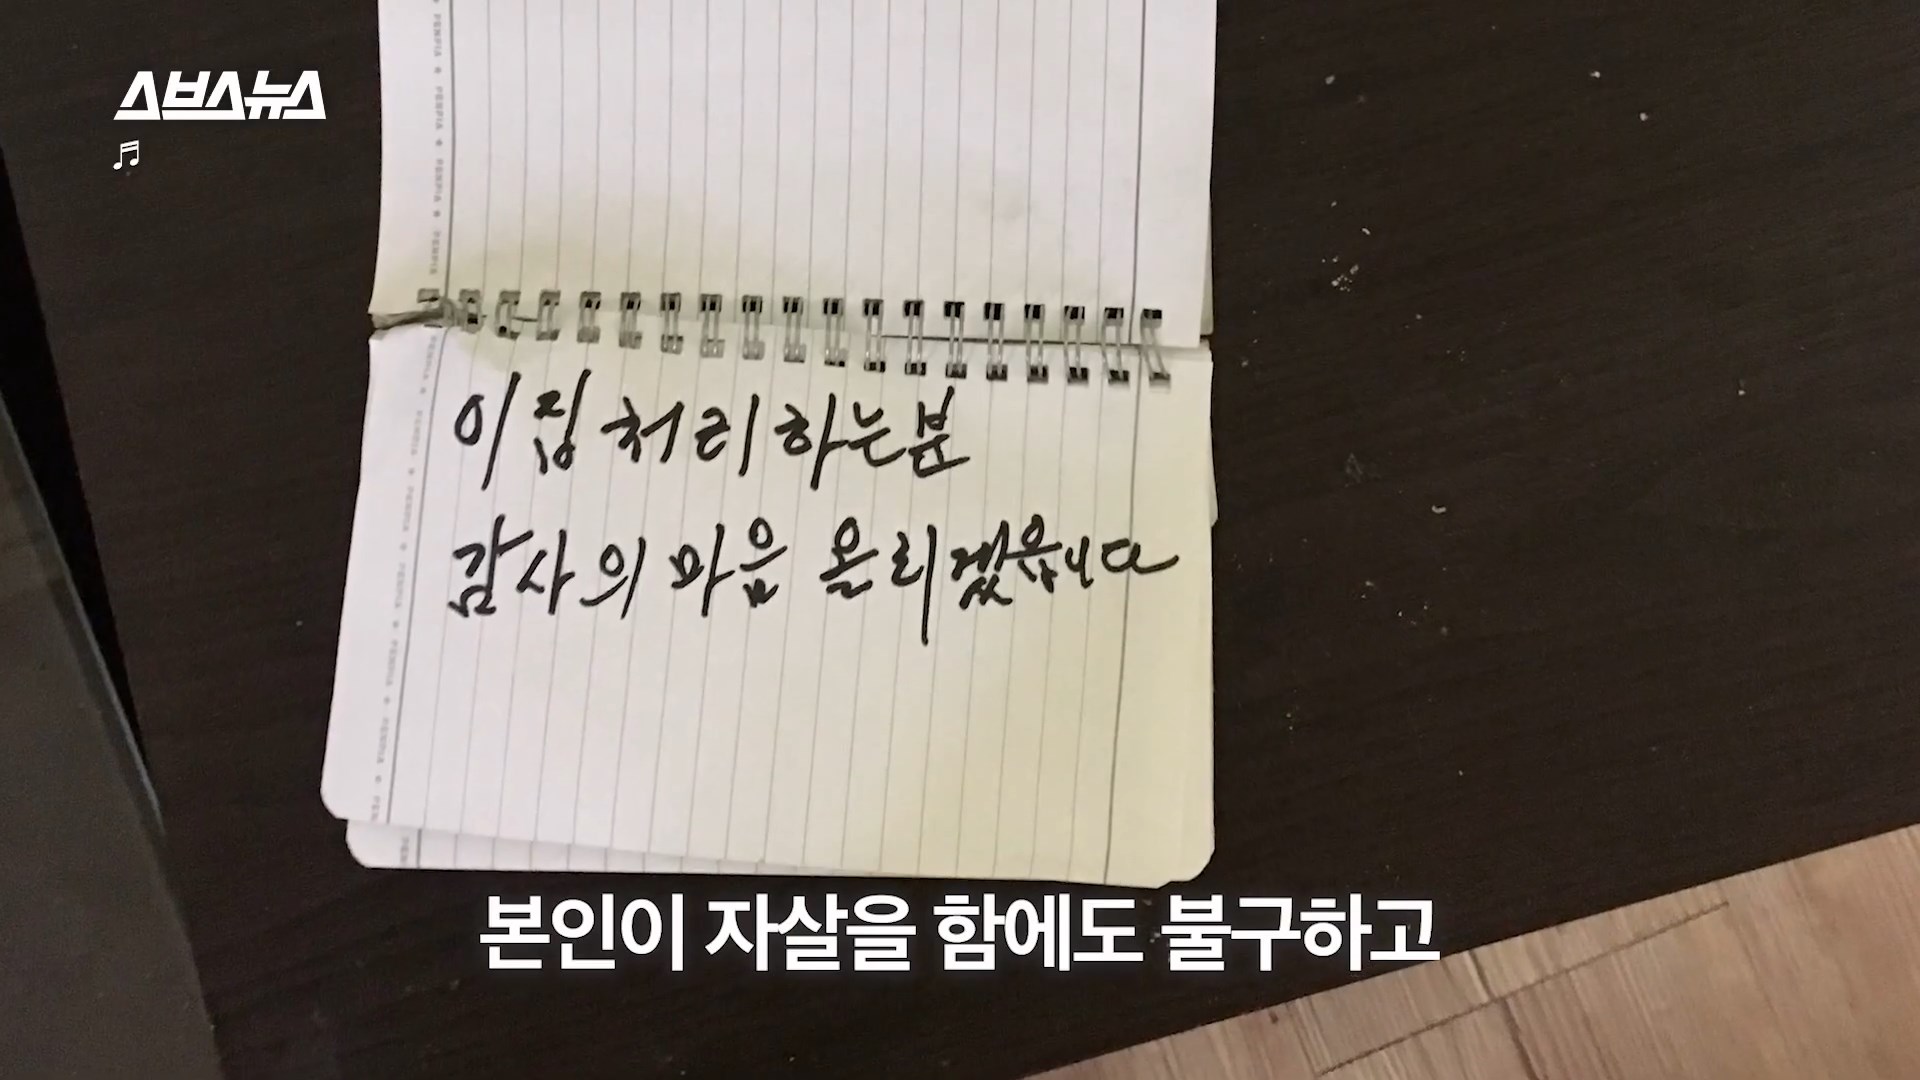 스브스뉴스
이 집 처리하는분
감사의 마음 올리겠읍니다
본인이 자살을 함에도 불구하고